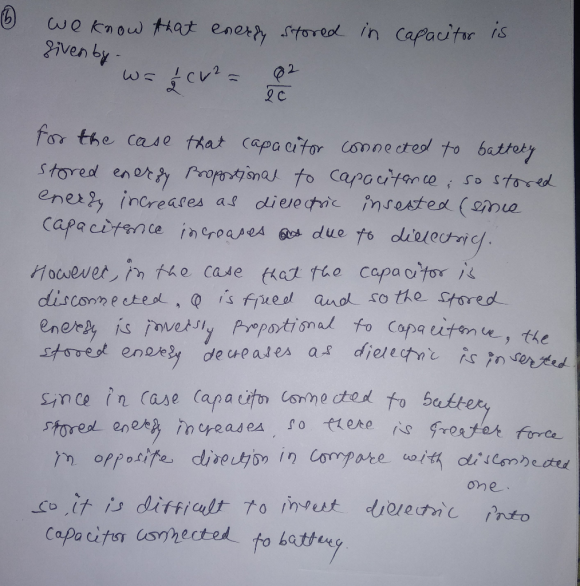 (b) we know that energy stored in capacitor is
given by -
W = 1/2 CV² = Q²/2C
for the case that capacitor connected to battery
stored energy proportional to capacitance, so stored
energy increases as dielectric inserted (since
capacitance increases as due to dielectric).
However, in the case that the capacitor is
disconnected, Q is fixed and so the stored
energy is inversly proportional to capacitance, the
stored energy decreases as dielectric is inserted
since in case capacitor connected to battery
stored energy increases, so there is greater force
in opposite direction in compare with disconnected
one.
so, it is difficult to insert dielectric into
capacitor connected to battery